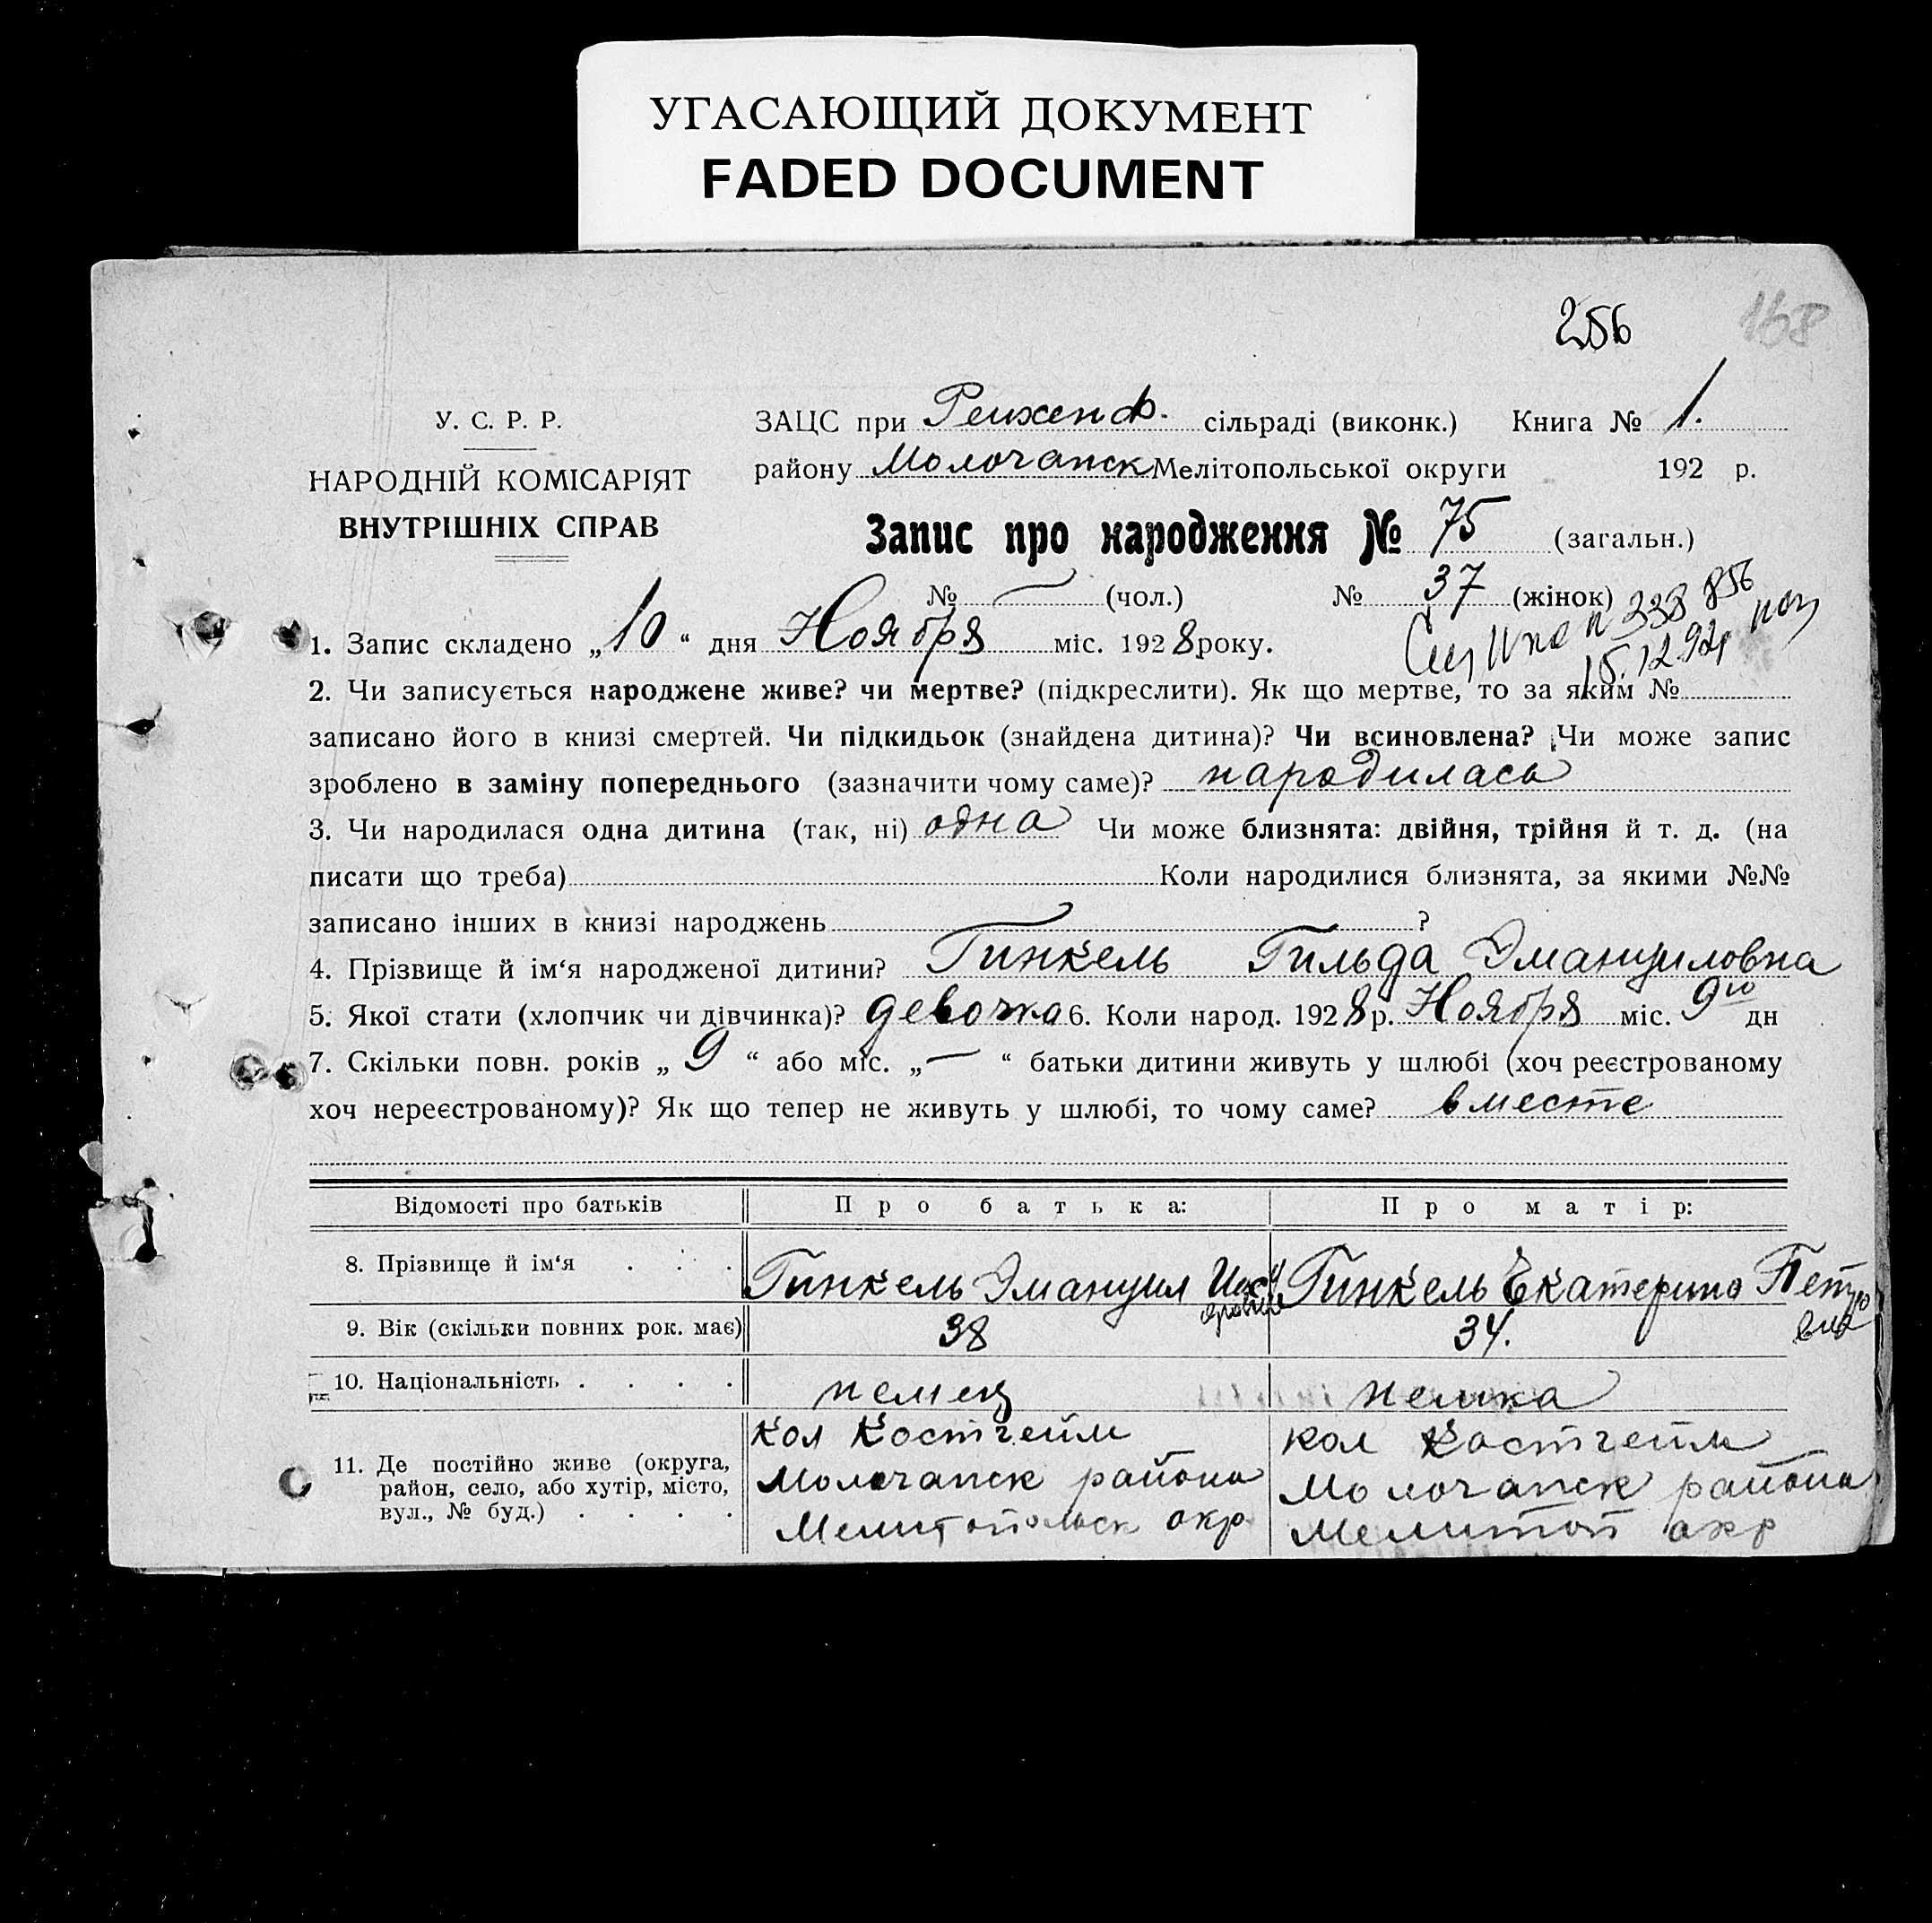 УГАСАЮЩИЙ ДОКУМЕНТ
FADED DOCUMENT
256
168
У. С. Р. Р.
НАРОДНІЙ КОМІСАРІЯТ
ВНУТРІШНІХ СПРАВ
ЗАЦС при Рейхенф. сільраді (виконк.) Книга № 1.
району Молочанск Мелітопольської округи 192 р.
Запис про народження № 75 (загальн.)
№ — (чол.) № 37 (жінок)
1. Запис складено „10“ дня Ноября міс. 1928 року.
2. Чи записується народжене живе? чи мертве? (підкреслити). Як що мертве, то за яким №
записано його в книзі смертей. Чи підкидьок (знайдена дитина)? Чи всиновлена? Чи може запис
зроблено в заміну попереднього (зазначити чому саме)? народилась
3. Чи народилася одна дитина (так, ні) одна Чи може близнята: двійня, трійня й т. д. (на
писати що треба) Коли народилися близнята, за якими №№
записано інших в книзі народжень ?
4. Прізвище й ім‘я народженої дитини? Гинкель Гильда Эмануиловна
5. Якої стати (хлопчик чи дівчинка)? девочка 6. Коли народ. 1928 р. Ноября міс. 9го дн
7. Скільки повн. років „9“ або міс. „—“ батьки дитини живуть у шлюбі (хоч реєстрованому
хоч нереєстрованому)? Як що тепер не живуть у шлюбі, то чому саме? вместе
Відомості про батьків Про батька: Про матір:
8. Прізвище й ім‘я . . . Гинкель Эмануил Гинкель Екатерина Петро
вна
9. Вік (скільки повних рок. має) 38 34.
10. Національність . . . . немец немка
11. Де постійно живе (округа, район, село, або хутір, місто, вул., № буд.) . . . .
кол Костгейм
Молочанск района
Мелитопольск окр
кол Костгейм
Молочанск района
Мелитоп окр